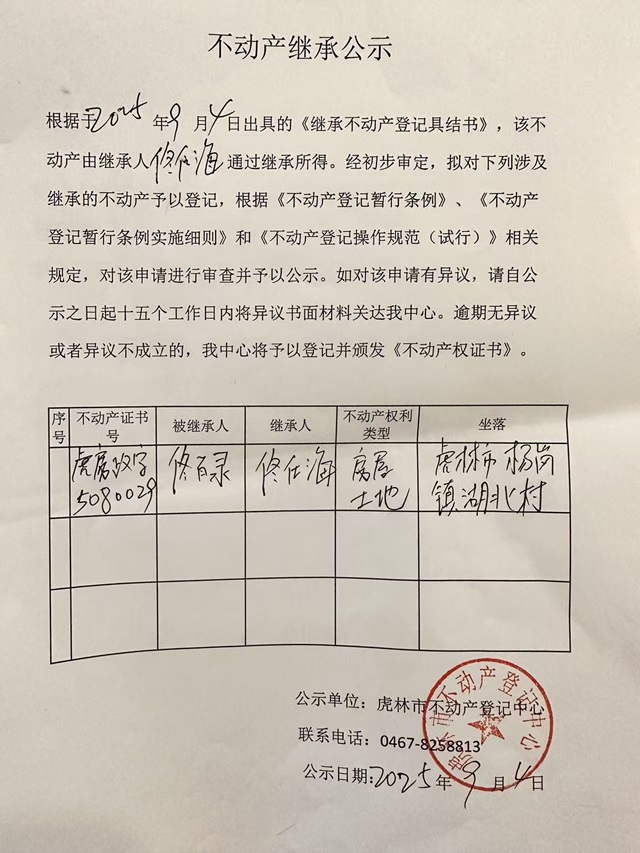 不动产继承公示
根据于2025年9月4日出具的《继承不动产登记具结书》，该不
动产由继承人佟任海通过继承所得。经初步审定，拟对下列涉及
继承的不动产予以登记，根据《不动产登记暂行条例》、《不动产
登记暂行条例实施细则》和《不动产登记操作规范（试行）》相关
规定，对该申请进行审查并予以公示。如对该申请有异议，请自公
示之日起十五个工作日内将异议书面材料关达我中心。逾期无异议
或者异议不成立的，我中心将予以登记并颁发《不动产权证书》。
序号 不动产证书号 被继承人 继承人 不动产权利类型 坐落
虎房政字 佟百录 佟任海 房屋 虎林市杨岗
5080029 土地 镇湖北村
公示单位：虎林市不动产登记中心
联系电话：0467-8258813
公示日期：2025年9月4日
虎林市不动产登记中心